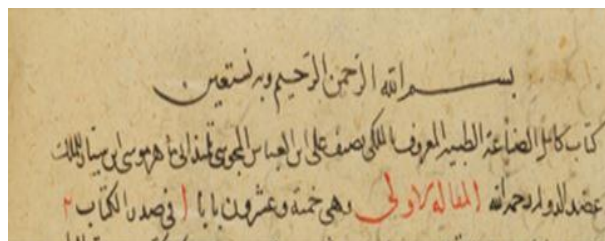 بسم الله الرحمن الرحيم وبه نستعين
كتاب كامل الصناعة الطبية المعروف بالملكي تصنيف علي ابن العباس المجوسي تلميذ ابي ماهر موسى ابن سيار للملك
عضد الدولة رحمه الله المقالة الاولى وهي خمسة وعشرون بابا ا في صدر الكتاب ٢